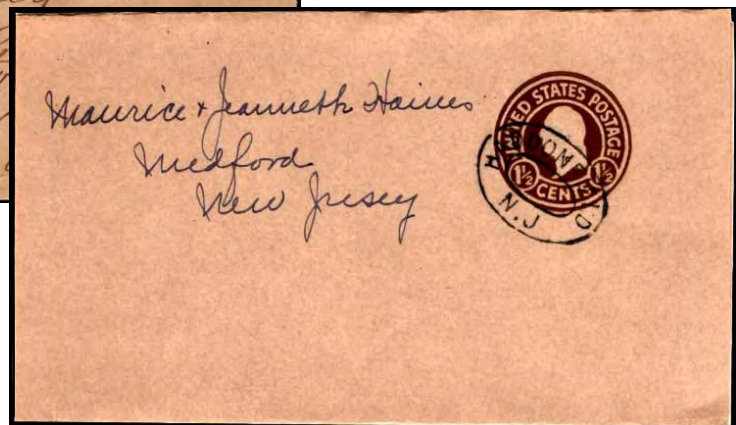 Maurice + Jeanneth Haines
Medford
New Jersey
UNITED STATES POSTAGE
1½ CENTS 1½
HADDONFIELD
N.J.